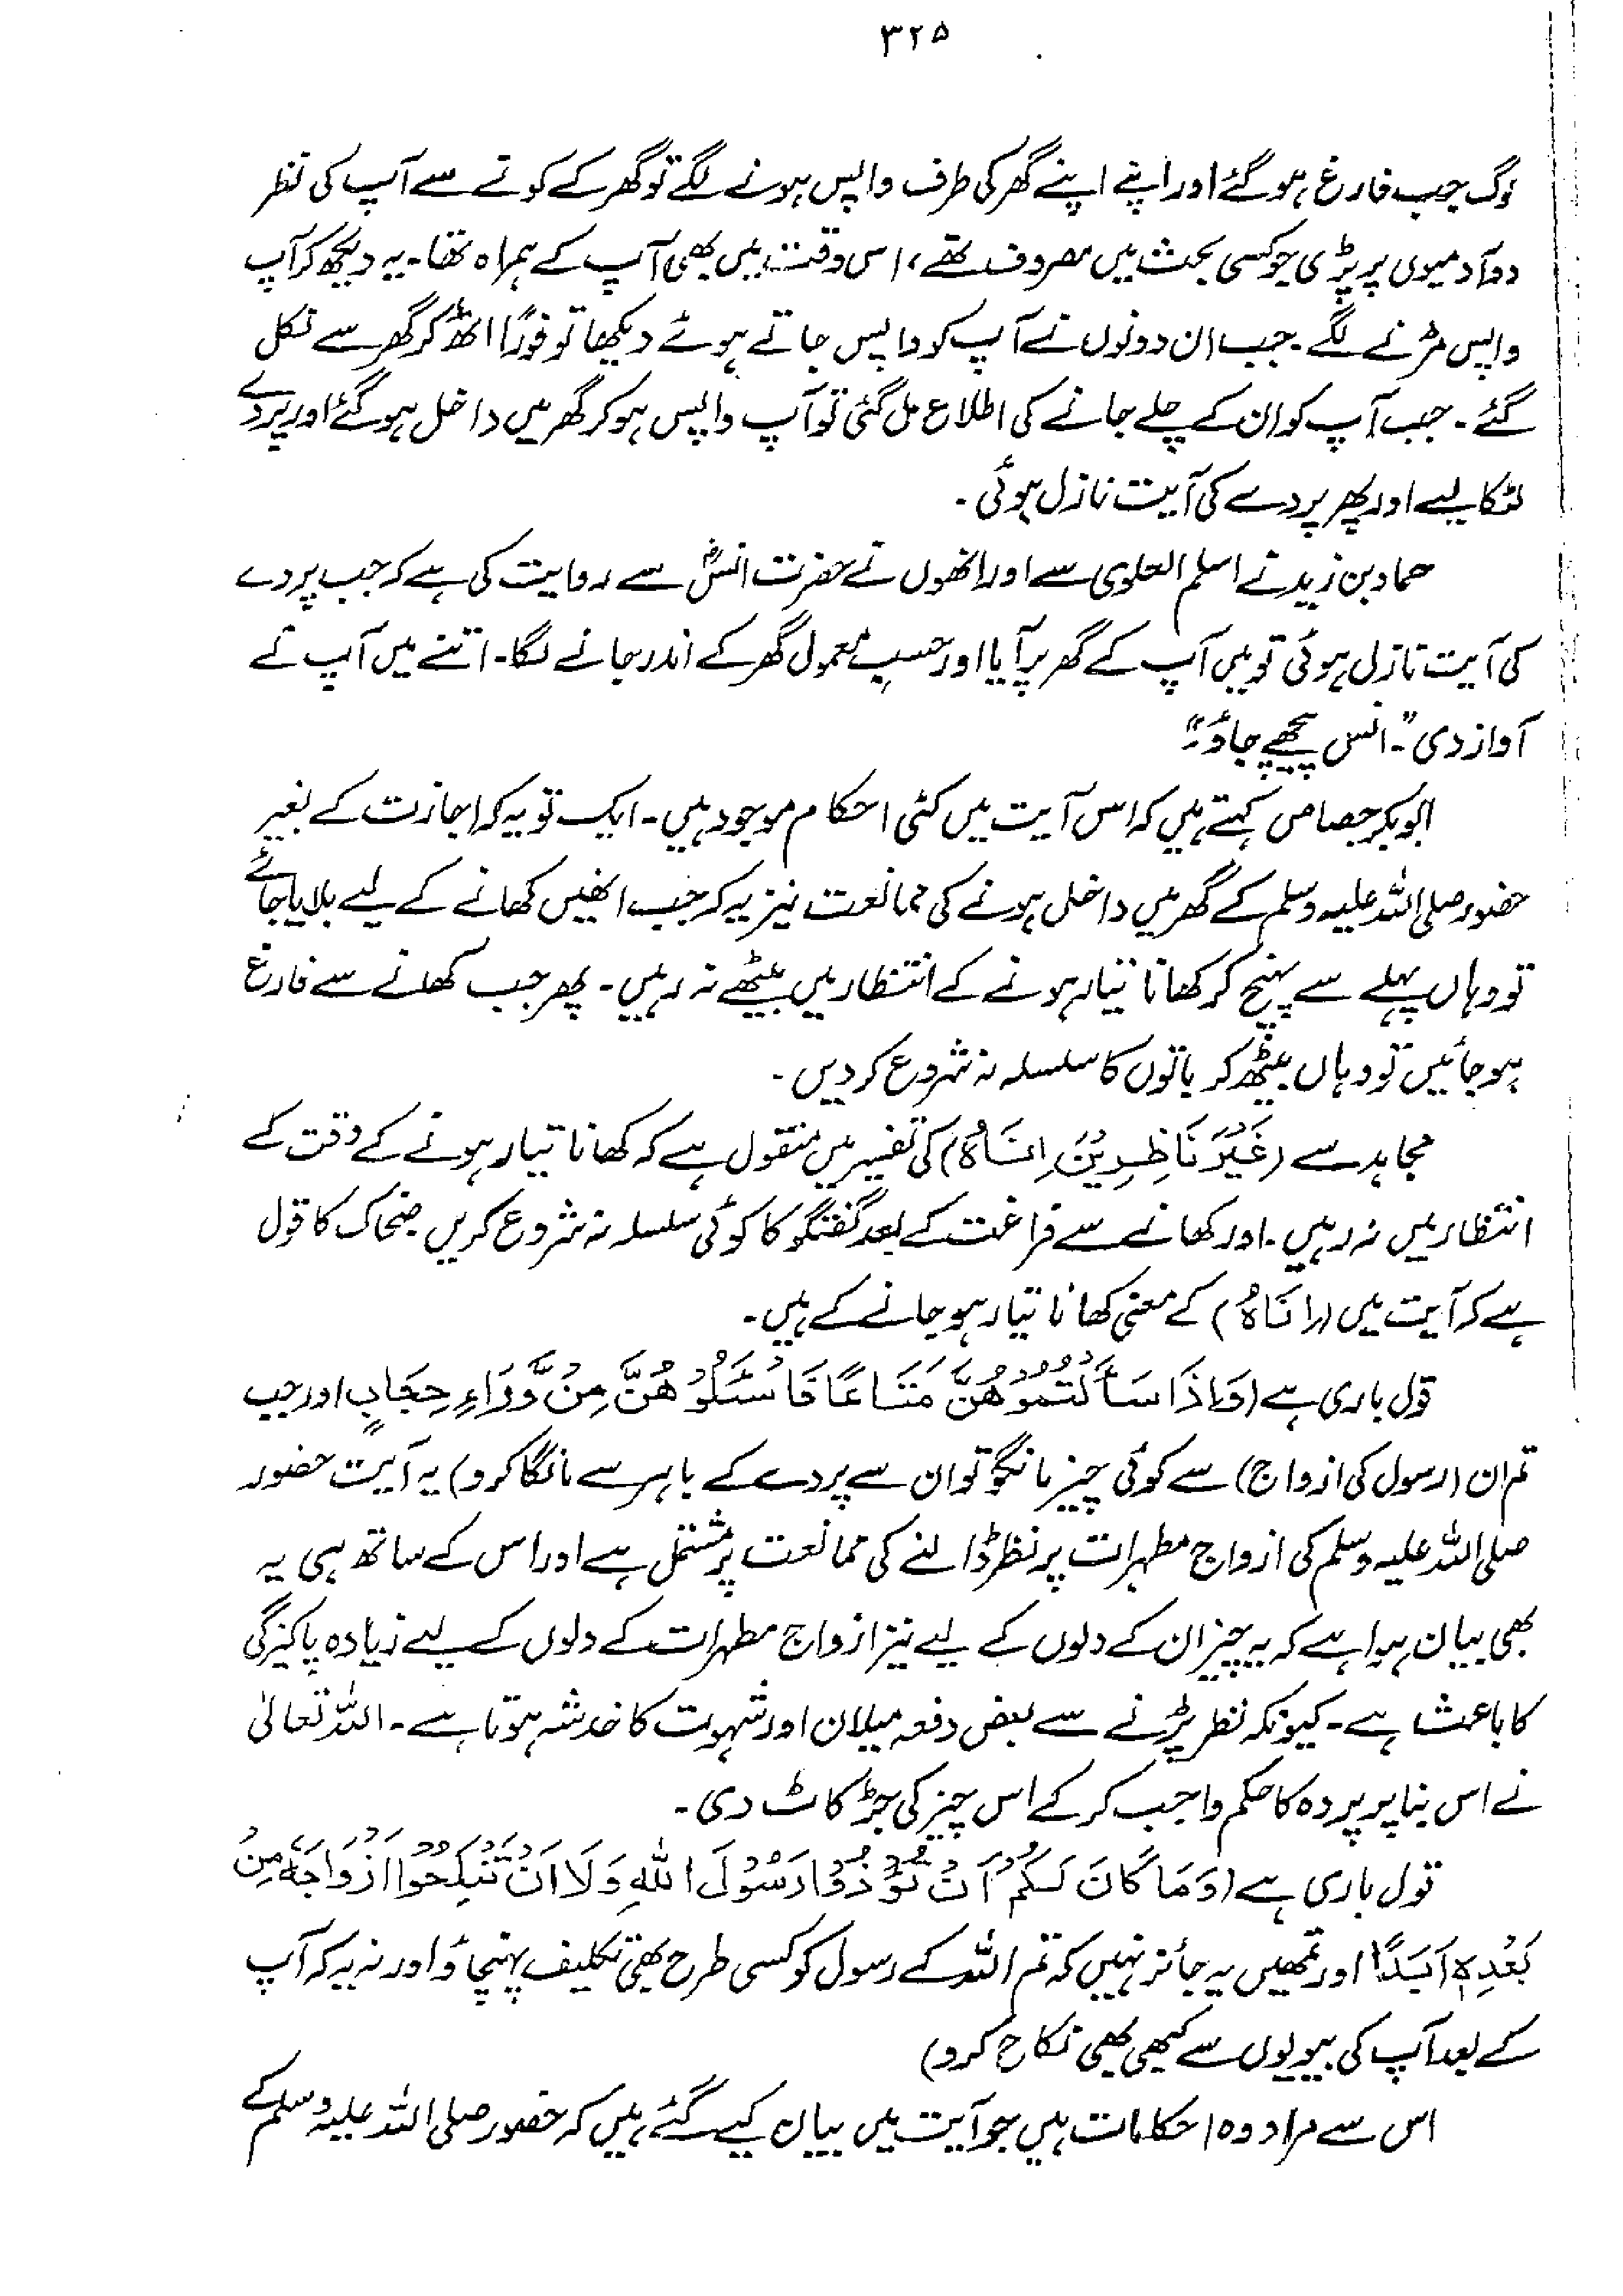 ۳۲۵
لوگ جب فارغ ہو گئے اور اپنے اپنے گھر کی طرف واپس ہونے لگے تو گھر کے کونے سے آپ کی نظر
دو آدمیوں پر پڑی جو کسی بحث میں مصروف تھے، اس وقت میں بھی آپ کے ہمراہ تھا۔ یہ دیکھ کر آپ
واپس مڑنے لگے۔ جب ان دونوں نے آپ کو واپس جاتے ہوئے دیکھا تو فوراً اٹھ کر گھر سے نکل
گئے۔ جب آپ کو ان کے چلے جانے کی اطلاع مل گئی تو آپ واپس ہو کر گھر میں داخل ہو گئے اور پردے
لٹکا لیے اور پھر پردے کی آیت نازل ہوئی۔
حماد بن زید نے اسلم العلوی سے اور انھوں نے حضرت انسؓ سے روایت کی ہے کہ جب پردے
کی آیت نازل ہوئی تو میں آپ کے گھر پر آیا اور حسب معمول گھر کے اندر جانے لگا۔ اتنے میں آپ نے
آواز دی "۔ انس پیچھے جاؤ۔"
ابوبکر جصاص کہتے ہیں کہ اس آیت میں کئی احکام موجود ہیں۔ ایک تو یہ کہ اجازت کے بغیر
حضور صلی اللہ علیہ وسلم کے گھر میں داخل ہونے کی ممانعت نیز یہ کہ جب انھیں کھانے کے لیے بلایا جائے
تو وہاں پہلے سے پہنچ کر کھانا تیار ہونے کے انتظار میں بیٹھے نہ رہیں۔ پھر جب کھانے سے فارغ
ہو جائیں تو وہاں بیٹھ کر باتوں کا سلسلہ نہ شروع کر دیں۔
مجاہد سے (غَیْرَ نَاظِرِیْنَ اِنَاہُ) کی تفسیر میں منقول ہے کہ کھانا تیار ہونے کے وقت کے
انتظار میں نہ رہیں۔ اور کھانے سے فراغت کے بعد گفتگو کا کوئی سلسلہ نہ شروع کریں ضحاک کا قول
ہے کہ آیت میں (اِنَاہُ) کے معنی کھانا تیار ہو جانے کے ہیں۔
قول باری ہے (وَاِذَا سَاَلْتُمُوْهُنَّ مَتَاعًا فَاسْئَلُوْهُنَّ مِنْ وَّرَاءِ حِجَابٍ اور جب
تم ان (رسول کی ازواج) سے کوئی چیز مانگو تو ان سے پردے کے باہر سے مانگا کرو) یہ آیت حضور
صلی اللہ علیہ وسلم کی ازواج مطہرات پر نظر ڈالنے کی ممانعت پر مشتمل ہے اور اس کے ساتھ ہی یہ
بھی بیان ہوا ہے کہ یہ چیز ان کے دلوں کے لیے نیز ازواج مطہرات کے دلوں کے لیے زیادہ پاکیزگی
کا باعث ہے۔ کیونکہ نظر پڑنے سے بعض دفعہ میلان اور شہوت کا خدشہ ہوتا ہے۔ اللہ تعالیٰ
نے اس بنا پر پردہ کا حکم واجب کر کے اس چیز کی جڑ کاٹ دی۔
قول باری ہے (وَمَا كَانَ لَكُمْ اَنْ تُؤْذُوْا رَسُوْلَ اللهِ وَلَا اَنْ تَنْكِحُوْا اَزْوَاجَهٗ مِنْ
بَعْدِهٖ اَبَدًا اور تمھیں یہ جائز نہیں کہ تم اللہ کے رسول کو کسی طرح بھی تکلیف پہنچاؤ اور نہ یہ کہ آپ
کے بعد آپ کی بیویوں سے کبھی بھی نکاح کرو)
اس سے مراد وہ احکامات ہیں جو آیت میں بیان کیے گئے ہیں کہ حضور صلی اللہ علیہ وسلم کے